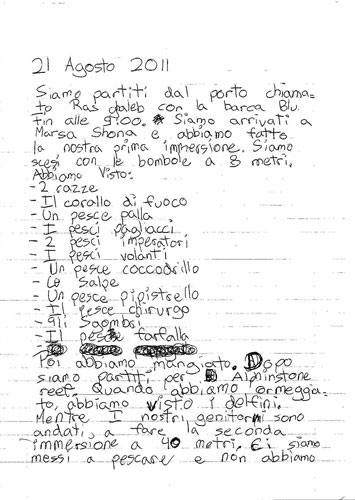 21 Agosto 2011
Siamo partiti dal porto chiama=
to Ras galeb con la barca Blu
fin alle 9:00. Siamo arrivati a
Marsa Shona e abbiamo fatto
la nostra prima immersione. Siamo
scesi con le bombole a 8 metri.
Abbiamo visto:
- 2 razze
- Il corallo di fuoco
- Un pesce palla
- I pesci pagliacci
- 2 pesci imperatori
- I pesci volanti
- Un pesce coccodrillo
- Le salpe
- Un pesce pipistrello
- Il pesce chirurgo
- Gli sgombri
- Il pesce farfalla
Poi abbiamo mangiato. Dopo
siamo partiti per Alphinstone
reef. Quando abbiamo ormeggia=
to, abbiamo visto i delfini.
Mentre I nostri genitori sono
andati, a fare la seconda
immersione a 40 metri, ci siamo
messi a pescare e non abbiamo